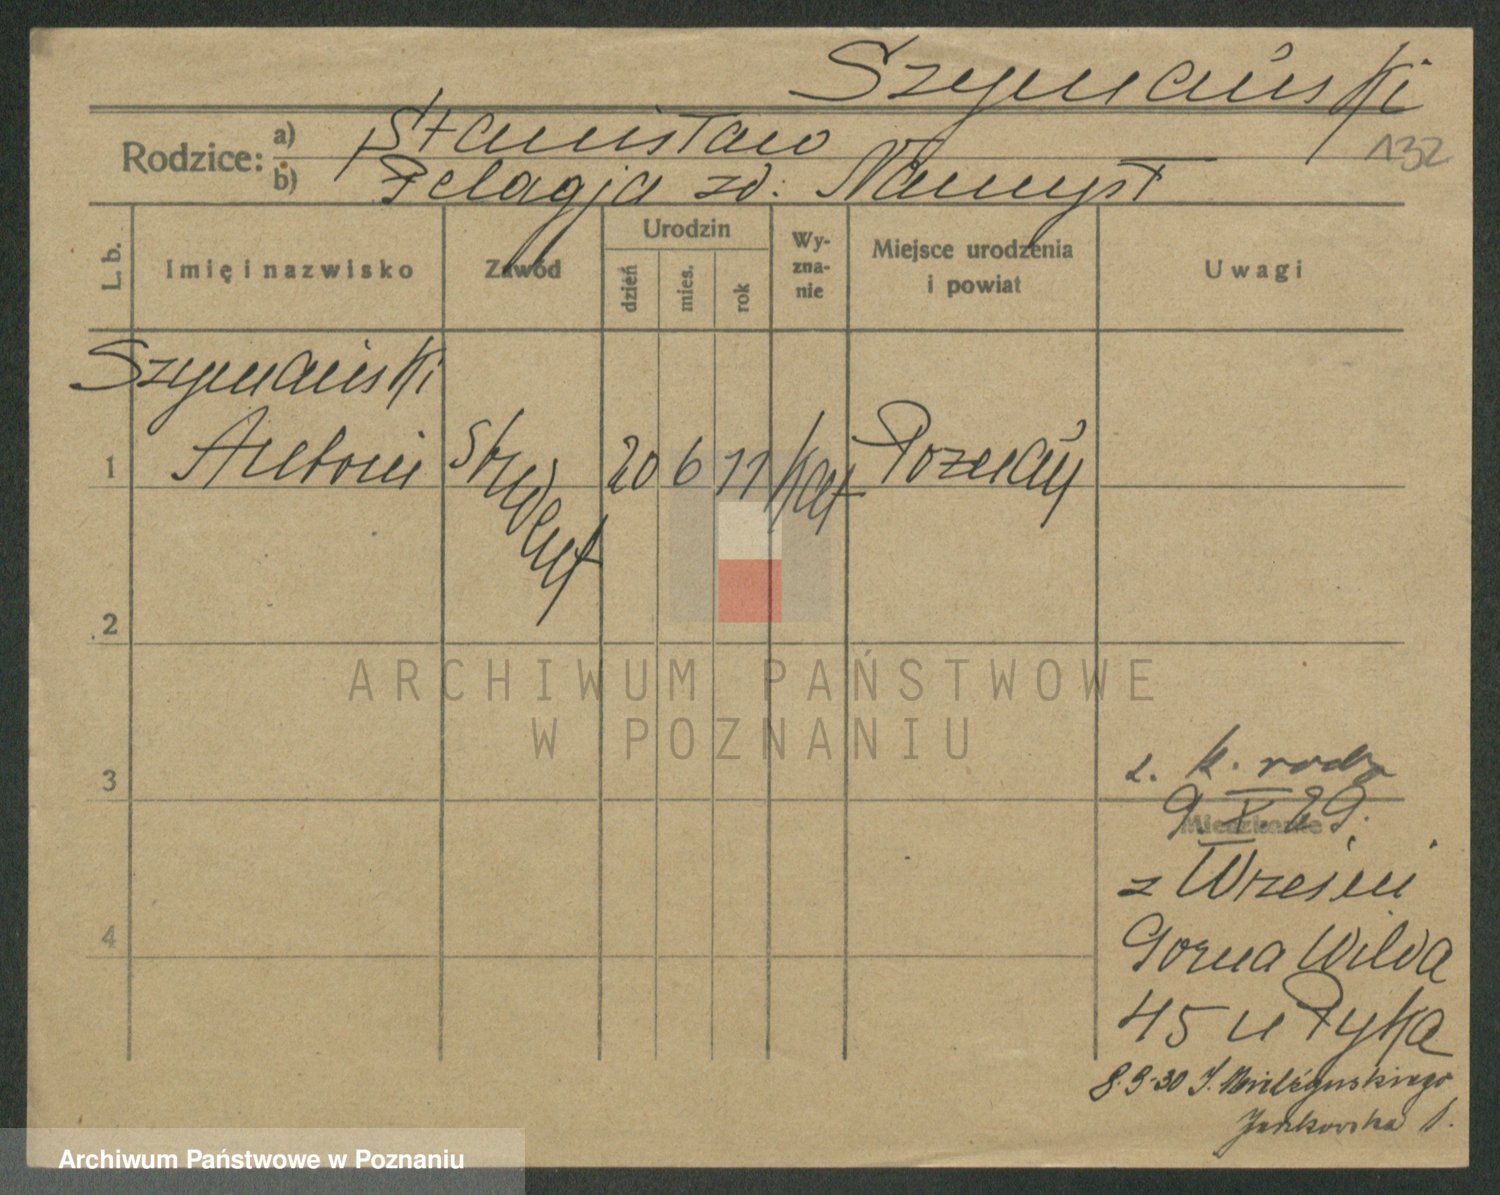 Szymański
132
Rodzice: a) Stanisław
b) Pelagja zd: Namysł
L. b.
Imię i nazwisko
Zawód
Urodzin
dzień
mies.
rok
Wy-
zna-
nie
Miejsce urodzenia
i powiat
Uwagi
Szymański
1 Antoni student 20 6 11 kat Poznań
2
3
4
ARCHIWUM PAŃSTWOWE
W POZNANIU
z. k. rodz
9. X. 29.
Mieszkanie
z Wrześni
Górna Wilda
45 u Pyka
8.9-30 Mielżyńskiego
Jankowska
Archiwum Państwowe w Poznaniu